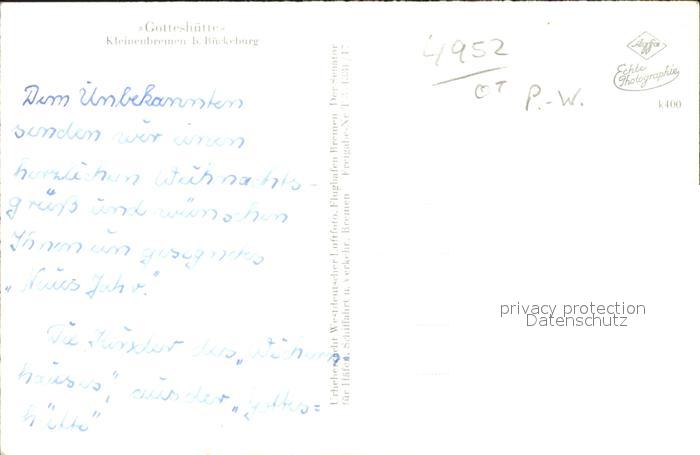 »Gotteshütte«
Kleinenbremen b. Bückeburg
Dem Unbekannten
senden wir einen
herzlichen Weihnachts-
gruß und wünschen
Ihnen ein gesegnetes
„Neues Jahr."
Die Kinder des „Wichern
hauses", aus der „Gottes=
hütte"
Urheberrecht Westdeutscher Luftfoto, Flughafen Bremen Der Senator
für Häfen, Schiffahrt u. Verkehr, Bremen Freigabe-Nr.
4952
OT
P.-W.
Agfa
Echte
Photographie
k400
privacy protection
Datenschutz